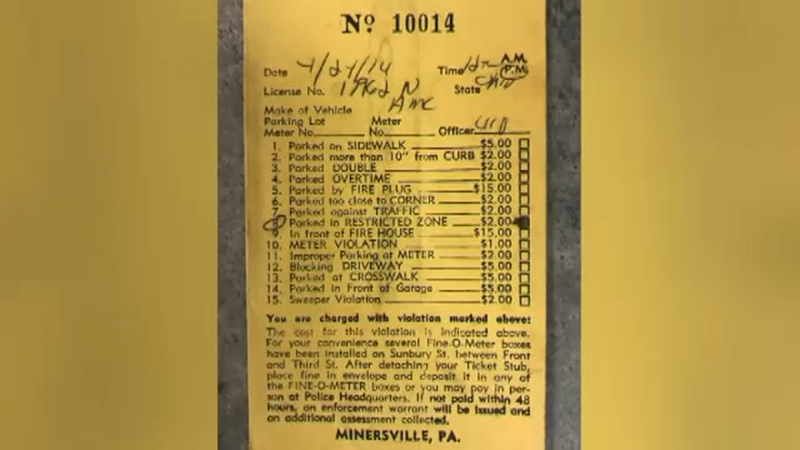 Nº 10014
Date 4/24/74 Time A.M. P.M.
License No. 1962 N State Ohio
Make of Vehicle AMC
Parking Lot Meter
Meter No. No. Officer
1. Parked on SIDEWALK $5.00
2. Parked more than 10" from CURB $2.00
3. Parked DOUBLE $2.00
4. Parked OVERTIME $2.00
5. Parked by FIRE PLUG $15.00
6. Parked too close to CORNER $2.00
7. Parked against TRAFFIC $2.00
8. Parked in RESTRICTED ZONE $2.00
9. In front of FIRE HOUSE $15.00
10. METER VIOLATION $1.00
11. Improper Parking at METER $2.00
12. Blocking DRIVEWAY $5.00
13. Parked at CROSSWALK $5.00
14. Parked in Front of Garage $5.00
15. Sweeper Violation $2.00
You are charged with violation marked above:
The cost for this violation is indicated above.
For your convenience several Fine-O-Meter boxes
have been installed on Sunbury St. between Front
and Third St. After detaching your Ticket Stub,
place fine in envelope and deposit it in any of
the FINE-O-METER boxes or you may pay in per-
son at Police Headquarters. If not paid within 48
hours, an enforcement warrant will be issued and
an additional assessment collected.
MINERSVILLE, PA.